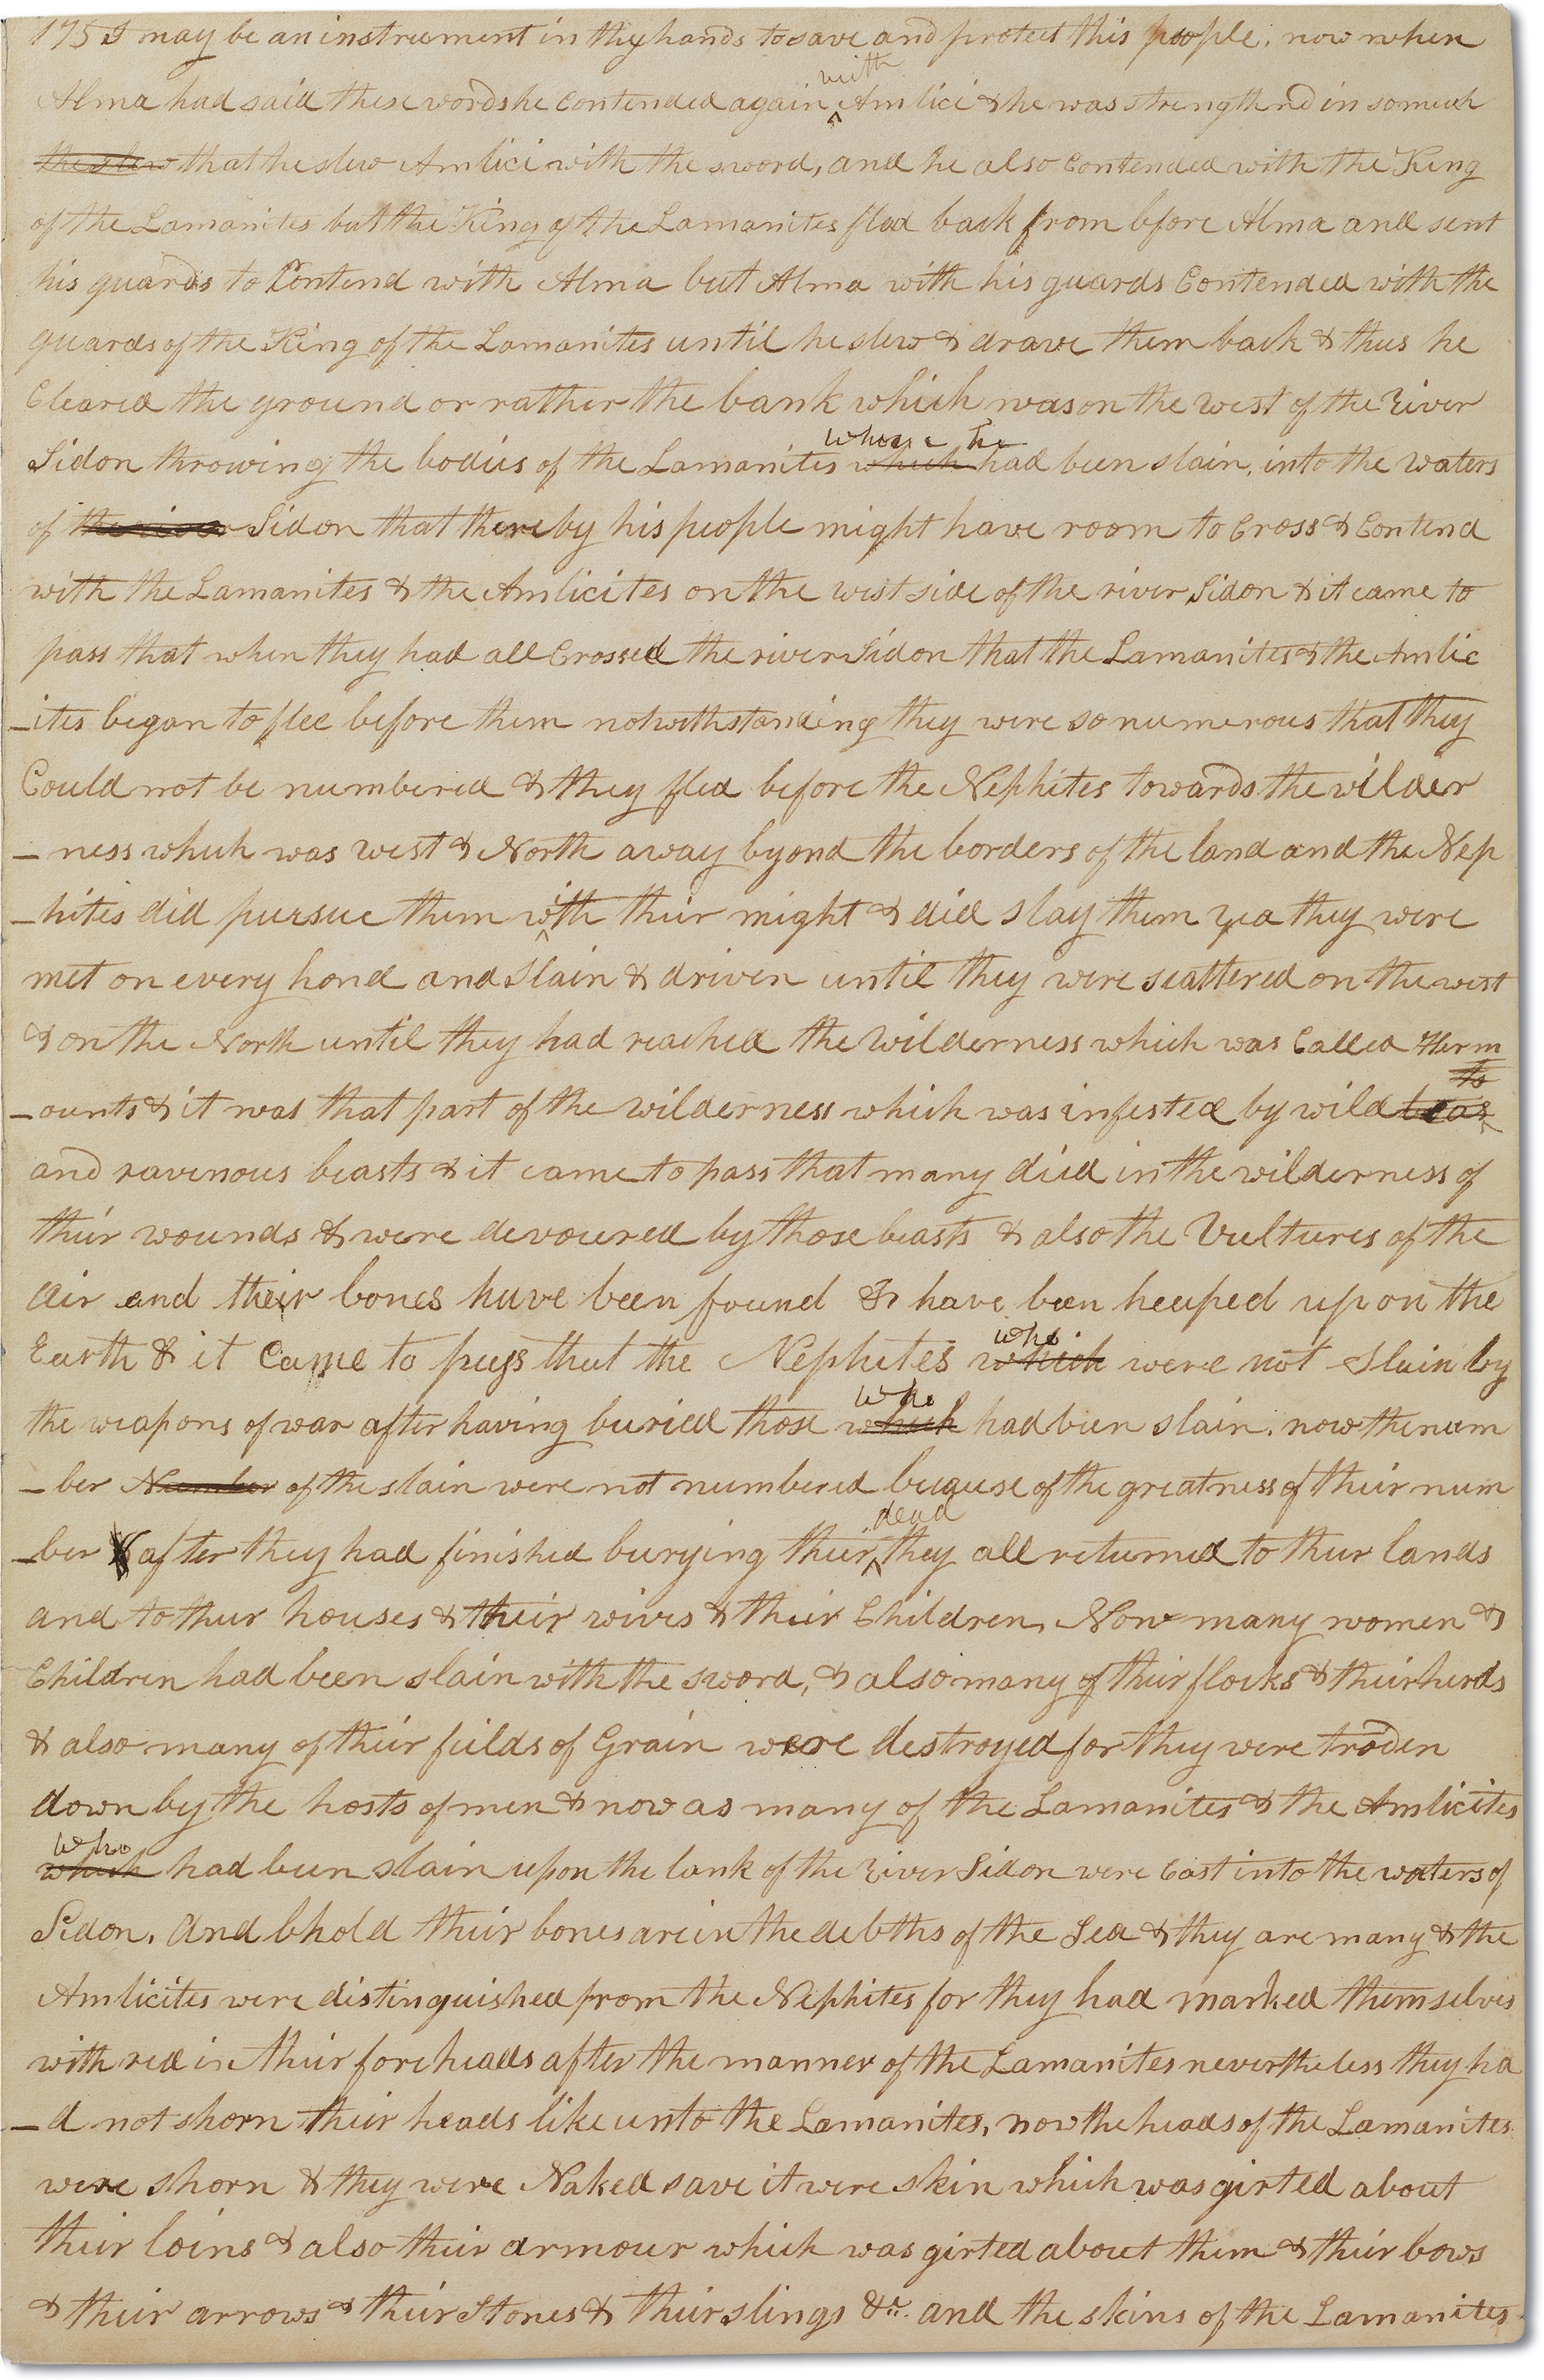 175 I may be an instrument in thy hands to save and protect this people, now when
with
Alma had said these words he Contended again Amlici & he was strengthend in somuch
the slew that he slew Amlici with the sword, and he also Contended with the King
of the Lamanites but the King of the Lamanites fled back from bfore Alma and sent
his guards to Contend with Alma but Alma with his guards Contended with the
guards of the King of the Lamanites until he slew & drave them back & thus he
Cleared the ground or rather the bank which was on the west of the River
whom he
Sidon throwing the bodies of the Lamanites which had been slain, into the waters
of the river Sidon that thereby his people might have room to Cross & Contend
with the Lamanites & the Amlicites on the west side of the river Sidon & it came to
pass that when they had all Crossed the river Sidon that the Lamanites & the Amlic
-ites began to flee before them notwithstanding they were so numerous that they
Could not be numbered & they fled before the Nephites towards the wilder
-ness which was west & North away byond the borders of the land and the Nep
-hites did pursue them with their might & did slay them yea they were
met on every hand and slain & driven until they were scattered on the west
& on the North until they had reached the Wilderness which was Called Herm
ts
-ounts & it was that part of the wilderness which was infested by wild beas
and ravenous beasts & it came to pass that many died in the wilderness of
their wounds & were devoured by those beasts & also the Vultures of the
air and their bones have been found & have been heaped up on the
who
Earth & it Came to pass that the Nephites which were not slain by
who
the weapons of war after having buried those which had been slain, now the num
-ber Number of the slain were not numbered because of the greatness of their num
dead
-ber & after they had finished burying their they all returned to their lands
and to their houses & their wives & their Children, Now many women &
Children had been slain with the sword, & also many of their flocks & their herds
& also many of their fields of Grain were destroyed for they were troden
down by the hosts of men & now as many of the Lamanites & the Amlicites
who
which had been slain upon the bank of the River Sidon were Cast into the waters of
Sidon, And bhold their bones are in the debths of the Sea & they are many & the
Amlicites were distinguished from the Nephites for they had marked themselves
with red in their foreheads after the manner of the Lamanites nevertheless they ha
-d not shorn their heads like unto the Lamanites, now the heads of the Lamanites
were shorn & they were Naked save it were skin which was girted about
their loins & also their armour which was girted about them & their bows
& their arrows & their Stones & their slings &c. and the skins of the Lamanites